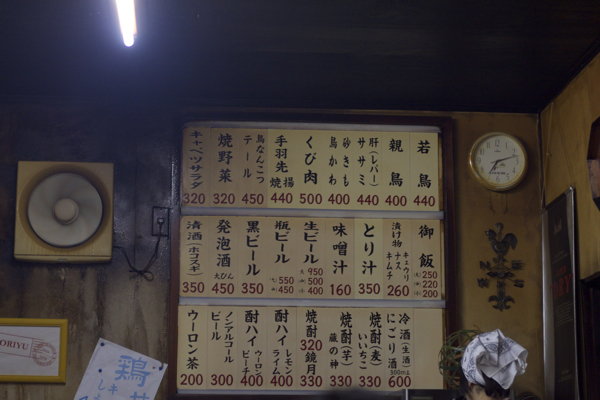 若鳥 440
親鳥 400
肝(レバー)
ササミ 440
砂ぎも
鳥かわ 400
くび肉 500
手羽先
揚
焼 440
鳥なんこつ
テール 450
焼野菜 320
キャベツサラダ 320
御飯
大 250
中 220
小 200
漬け物
キュウリ
ナス
キムチ 260
とり汁 350
味噌汁 160
生ビール
大 950
中 500
小 400
瓶ビール
大 550
小 450
黒ビール 350
発泡酒
大びん 450
清酒(ホコスギ) 350
冷酒(生酒)
にごり酒
300ml 600
焼酎(麦)
いいちこ 330
焼酎(芋)
蔵の神 330
焼酎 320
鏡月 330
酎ハイ
レモン
ライム 400
酎ハイ
ウーロン
ピーチ 400
ノンアルコール
ビール 300
ウーロン茶 200
ORIYU
鶏
キ